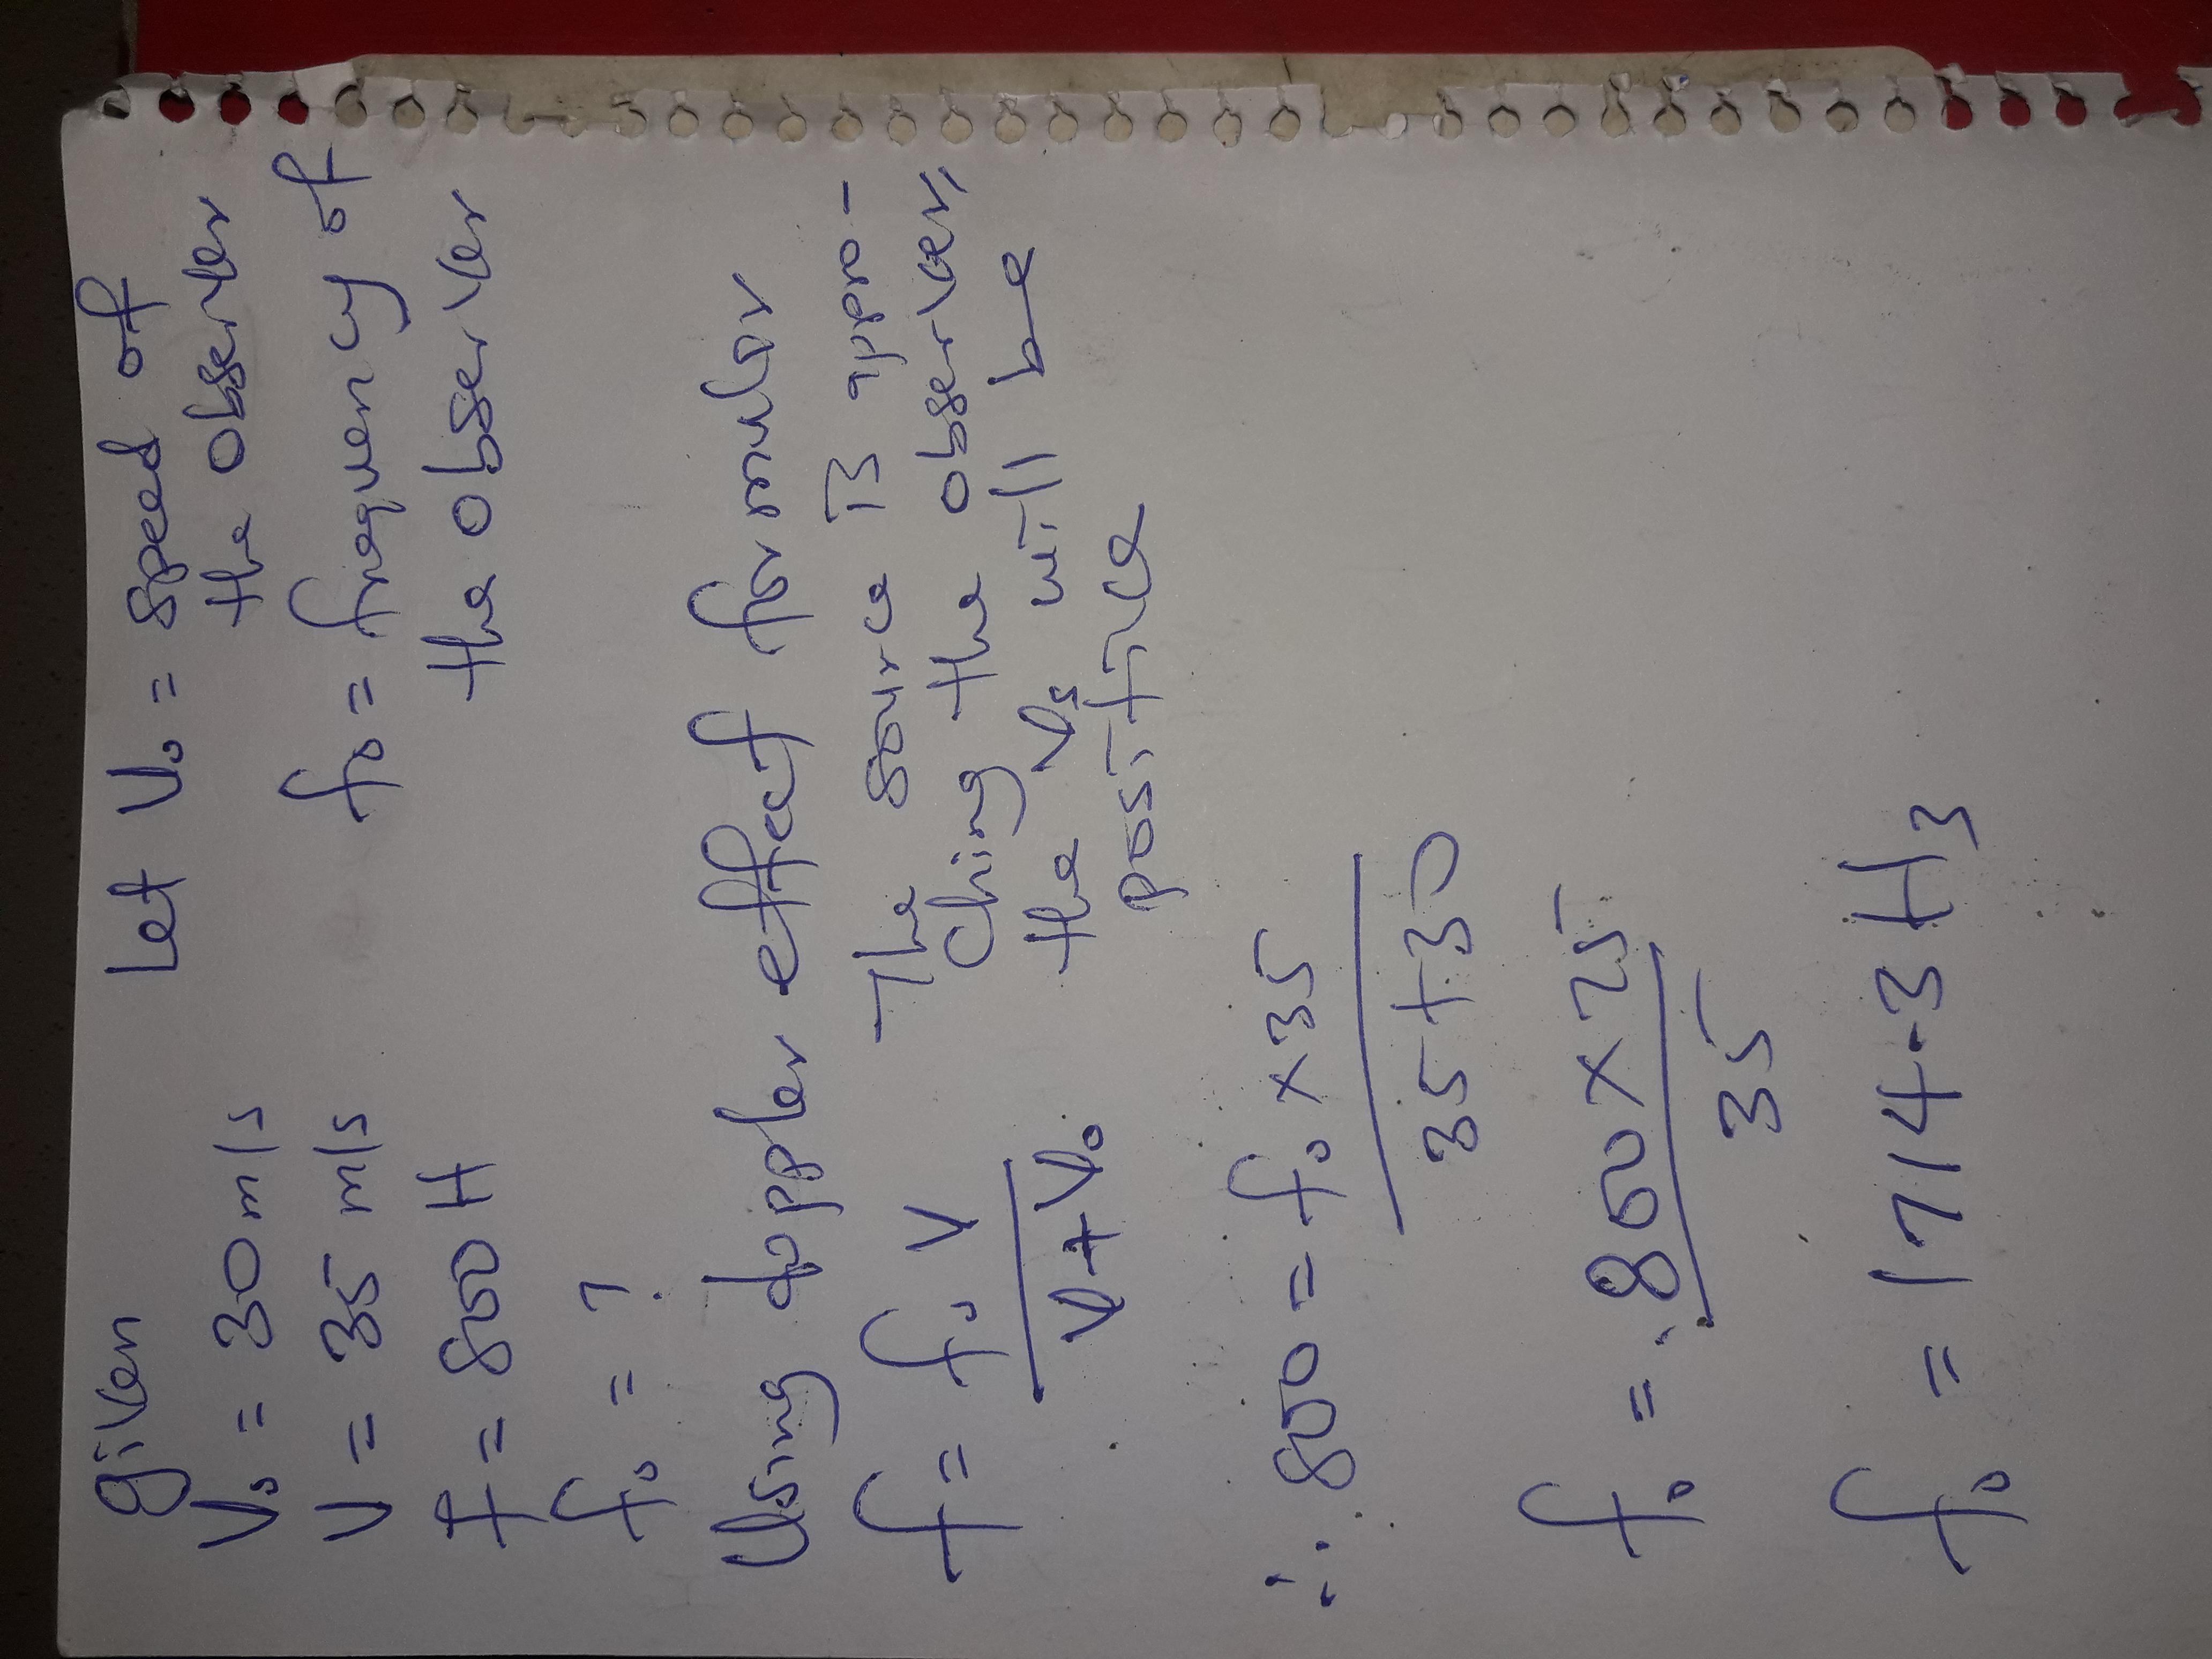 given
V₀ = 30 m/s
V = 35 m/s
f = 800 H
f₀ = ?
Let V₀ = speed of
the observer
f₀ = frequency of
the observer
Using doppler effect formular
f = f₀ V / V + V₀
The source is appro-
ching the observer,,
the Vs will be
positive
∴ 800 = f₀ × 35 / 35 + 30
f₀ = 800 × 75 / 35
f₀ = 1714.3 Hz